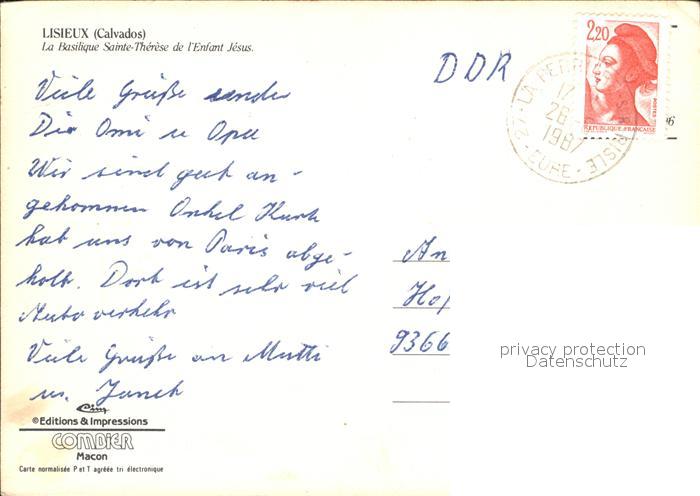 LISIEUX (Calvados)
La Basilique Sainte-Thérèse de l'Enfant Jésus.
DDR
2,20
POSTES
REPUBLIQUE FRANÇAISE
27 - LA
RISLE - EURE -
17
28
1987
6
Viele Grüße senden
Die Omi u Opa
Wir sind gut an-
gekommen Onkel Kurt
hat uns von Paris abge-
holt. Dort ist sehr viel
Auto verkehr
Viele Grüße an Mutti
u.
An
9366
privacy protection
Datenschutz
Cim
©Editions & Impressions
COMBIER
Macon
Carte normalisée P et T agréée tri électronique